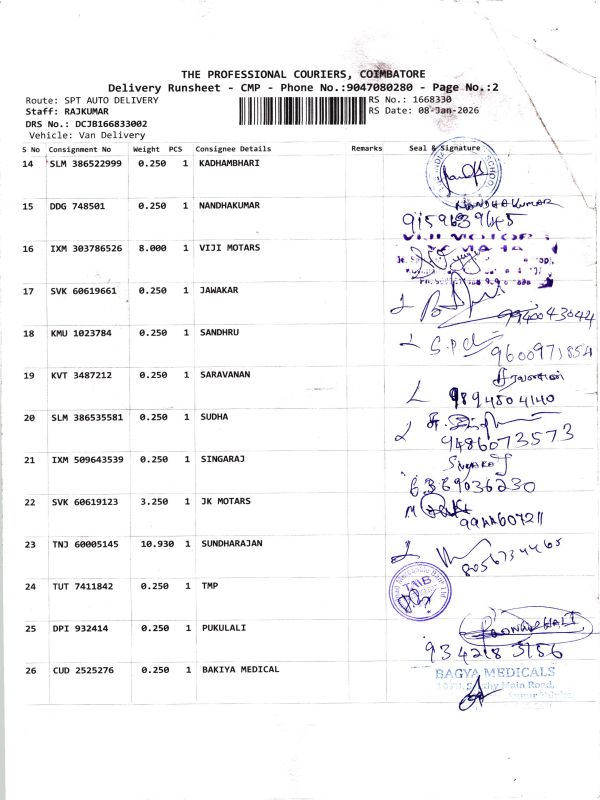 THE PROFESSIONAL COURIERS, COIMBATORE
Delivery Runsheet - CMP - Phone No.:9047080280 - Page No.:2
Route: SPT AUTO DELIVERY RS No.: 1668330
Staff: RAJKUMAR RS Date: 08-Jan-2026
DRS No.: DCJB166833002
Vehicle: Van Delivery
S No Consignment No Weight PCS Consignee Details Remarks Seal & Signature
14 SLM 386522999 0.250 1 KADHAMBHARI
SCHOOL
15 DDG 748501 0.250 1 NANDHAKUMAR NANDHAKUMAR
9159639645
16 IXM 303786526 8.000 1 VIJI MOTARS
VIJI MOTOR
17 SVK 60619661 0.250 1 JAWAKAR
9940043044
18 KMU 1023784 0.250 1 SANDHRU
9600971854
19 KVT 3487212 0.250 1 SARAVANAN சரவணன்
9894504140
20 SLM 386535581 0.250 1 SUDHA
9486073573
21 IXM 509643539 0.250 1 SINGARAJ
6369036230
22 SVK 60619123 3.250 1 JK MOTARS
23 TNJ 60005145 10.930 1 SUNDHARAJAN
8056734465
24 TUT 7411842 0.250 1 TMP
TMB
25 DPI 932414 0.250 1 PUKULALI
9342183156
26 CUD 2525276 0.250 1 BAKIYA MEDICAL BAGYA MEDICALS
Main Road,